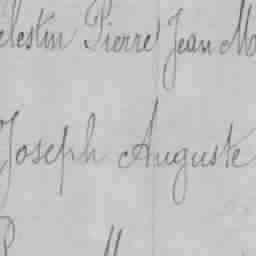 elestin Pierre Jean Mo
Joseph Auguste